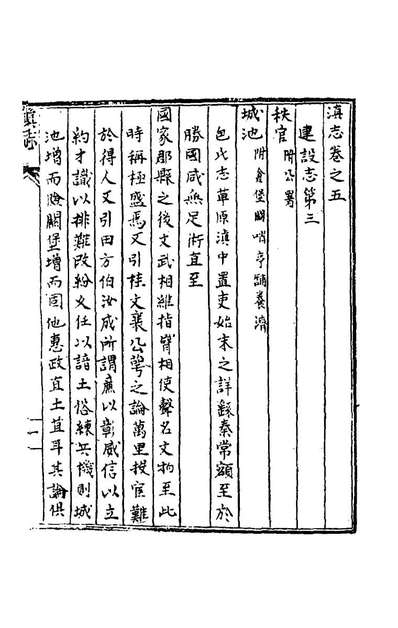 滇志卷之五
建設志第三
秩官附公署
城池附倉堡關哨亭舖養濟
包氏志草原滇中置吏始末之詳繇秦常頞至於
勝國咸無足術直至
國家郡縣之後文武相維指臂相使聲名文物至此
時稱極盛焉又引桂文襄公萼之論萬里投官難
於得人又引田方伯汝成所謂廉以彰威信以立
約才識以排難改紛久任以諳土俗練兵機則城
池增而險關堡增而固他惠政直土苴耳其論俱
滇志